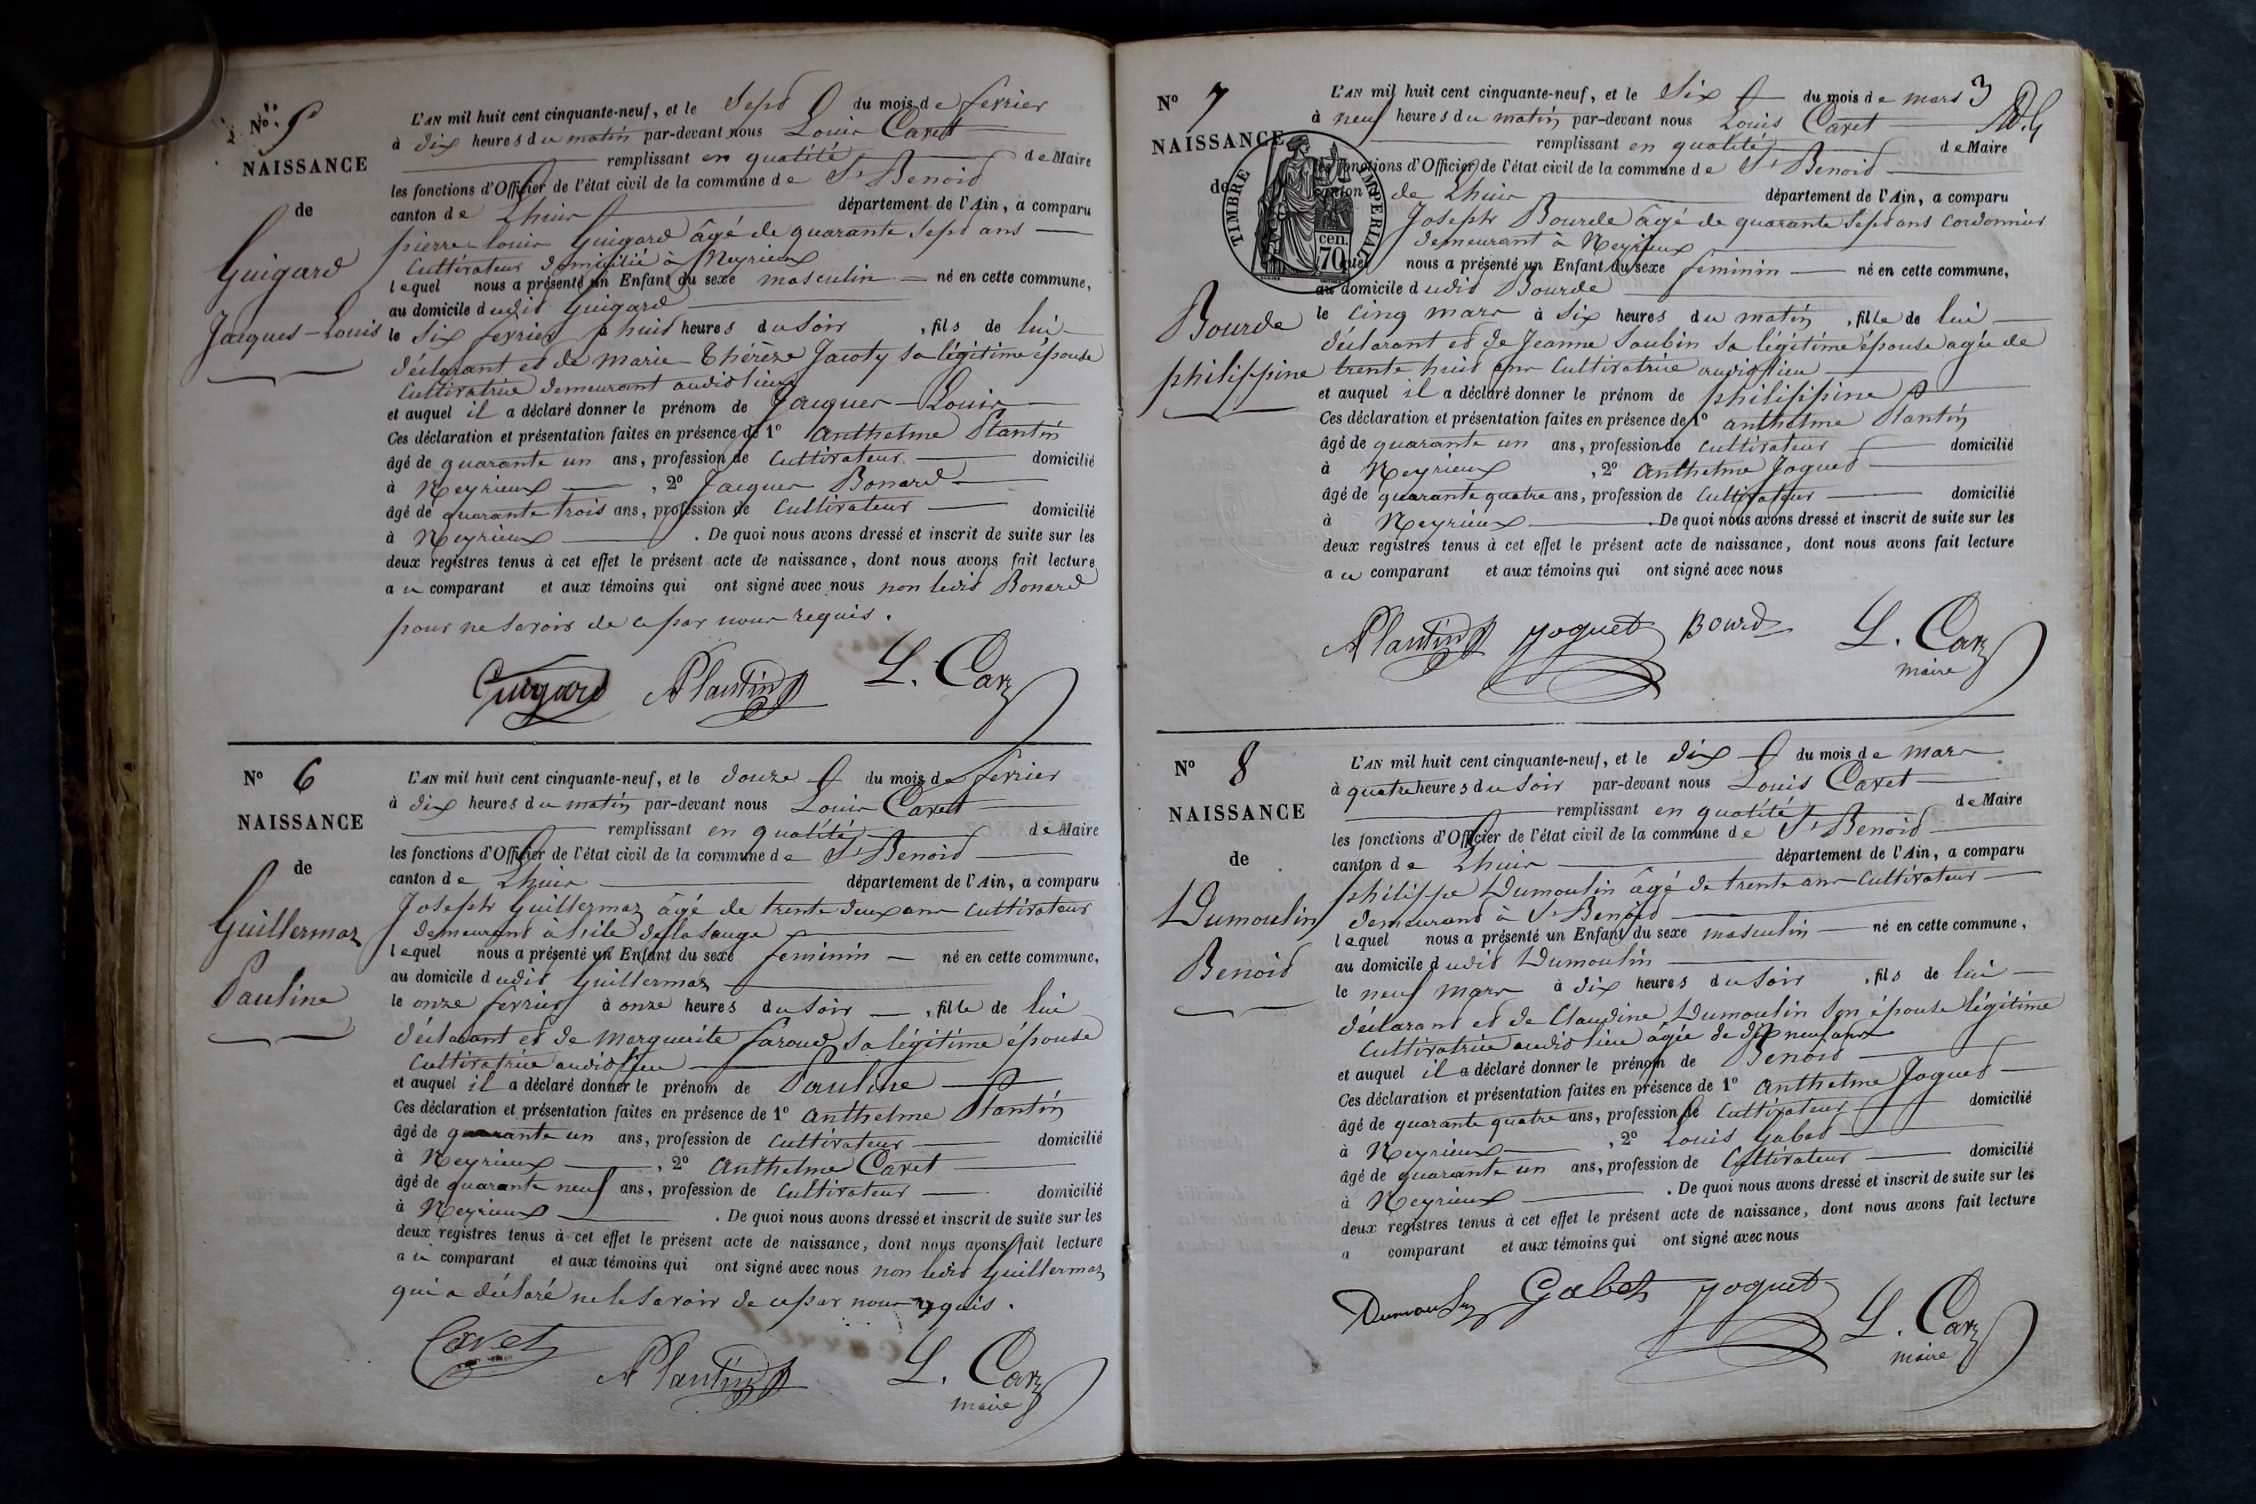 N° 5
NAISSANCE
de
Guigard
Jacques-Louis
L'AN mil huit cent cinquante-neuf, et le Sept du mois de fevrier
à dix heures du matin par-devant nous Louis Cavet
remplissant en qualité de Maire
les fonctions d'Officier de l'état civil de la commune de St Benoid
canton de Lhuis département de l'Ain, a comparu
pierre-louis Guigard âgé de quarante Sept ans
Cultivateur domicilié à Neyrieux
lequel nous a présenté un Enfant du sexe masculin né en cette commune,
au domicile dudit Guigard
le Six fevrier à huit heures du Soir, fils de lui
déclarant et de marie-Thérèze Jacoty sa légitime épouse
Cultivatrice demeurant audit lieu
et auquel il a déclaré donner le prénom de Jacques-Louis
Ces déclaration et présentation faites en présence de 1° Anthelme Plantin
âgé de quarante un ans, profession de Cultivateur domicilié
à Neyrieux, 2° Jacques Bonard
âgé de quarante trois ans, profession de Cultivateur domicilié
à Neyrieux. De quoi nous avons dressé et inscrit de suite sur les
deux registres tenus à cet effet le présent acte de naissance, dont nous avons fait lecture
au comparant et aux témoins qui ont signé avec nous non ledit Bonard
pour ne savoir de ce par nous requis.
Guigard APlantin L. Cavet
N° 6
NAISSANCE
de
Guillermaz
Pauline
L'AN mil huit cent cinquante-neuf, et le douze du mois de fevrier
à dix heures du matin par-devant nous Louis Cavet
remplissant en qualité de Maire
les fonctions d'Officier de l'état civil de la commune de St Benoid
canton de Lhuis département de l'Ain, a comparu
Joseph Guillermaz âgé de trente deux ans Cultivateur
demeurant à l'île de la Sauge
lequel nous a présenté un Enfant du sexe feminin né en cette commune,
au domicile dudit Guillermaz
le onze fevrier à onze heures du Soir, fille de lui
déclarant et de Marguerite faraud sa légitime épouse
Cultivatrice audit lieu
et auquel il a déclaré donner le prénom de Pauline
Ces déclaration et présentation faites en présence de 1° Anthelme Plantin
âgé de quarante un ans, profession de Cultivateur domicilié
à Neyrieux, 2° Anthelme Cavet
âgé de quarante neuf ans, profession de Cultivateur domicilié
à Neyrieux. De quoi nous avons dressé et inscrit de suite sur les
deux registres tenus à cet effet le présent acte de naissance, dont nous avons fait lecture
au comparant et aux témoins qui ont signé avec nous non ledit Guillermaz
qui a déclaré ne le savoir de ce par nous requis.
Cavet APlantin L. Cavet
maire
3
N° 7
NAISSANCE
de
Bourde
philippine
TIMBRE IMPERIAL
70 cen.
L'AN mil huit cent cinquante-neuf, et le Six du mois de mars
à neuf heures du matin par-devant nous Louis Cavet
remplissant en qualité de Maire
les fonctions d'Officier de l'état civil de la commune de St Benoid
canton de Lhuis département de l'Ain, a comparu
Joseph Bourde âgé de quarante Sept ans Cordonnier
demeurant à Neyrieux
lequel nous a présenté un Enfant du sexe feminin né en cette commune,
au domicile dudit Bourde
le Cinq mars à Six heures du matin, fille de lui
déclarant et de Jeanne Saubin sa légitime épouse agée de
trente huit ans Cultivatrice audit lieu
et auquel il a déclaré donner le prénom de philippine
Ces déclaration et présentation faites en présence de 1° anthelme Plantin
âgé de quarante un ans, profession de Cultivateur domicilié
à Neyrieux, 2° Anthelme Joguet
âgé de quarante quatre ans, profession de Cultivateur domicilié
à Neyrieux. De quoi nous avons dressé et inscrit de suite sur les
deux registres tenus à cet effet le présent acte de naissance, dont nous avons fait lecture
au comparant et aux témoins qui ont signé avec nous
APlantin Joguet Bourde L. Cavet
maire
N° 8
NAISSANCE
de
Dumoulin
Benoid
L'AN mil huit cent cinquante-neuf, et le dix du mois de mars
à quatre heures du Soir par-devant nous Louis Cavet
remplissant en qualité de Maire
les fonctions d'Officier de l'état civil de la commune de St Benoid
canton de Lhuis département de l'Ain, a comparu
philippe Dumoulin âgé de trente ans Cultivateur
demeurant à St Benoid
lequel nous a présenté un Enfant du sexe masculin né en cette commune,
au domicile dudit Dumoulin
le neuf mars à dix heures du Soir, fils de lui
déclarant et de Claudine Dumoulin Son épouse légitime
Cultivatrice audit lieu âgée de dix neuf ans
et auquel il a déclaré donner le prénom de Benoid
Ces déclaration et présentation faites en présence de 1° Anthelme Joguet
âgé de quarante quatre ans, profession de Cultivateur domicilié
à Neyrieux, 2° Louis Gabet
âgé de quarante un ans, profession de Cultivateur domicilié
à Neyrieux. De quoi nous avons dressé et inscrit de suite sur les
deux registres tenus à cet effet le présent acte de naissance, dont nous avons fait lecture
a comparant et aux témoins qui ont signé avec nous
Dumoulin Gabet Joguet L. Cavet
maire